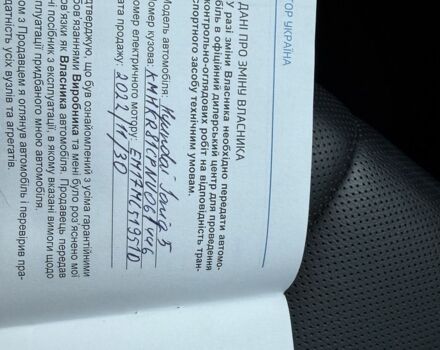 ТОР УКРАЇНА
ДАНІ ПРО ЗМІНУ ВЛАСНИКА
У разі зміни Власника необхідно передати автомо-
біль в офіційний дилерський центр для проведення
контрольно-оглядових робіт на відповідність тран-
спортного засобу технічним умовам.
Модель автомобіля: Hyundai Ioniq 5
Номер кузова:
номер електричного мотору:
ата продажу: 2022/11/30
дтверджую, що був ознайомлений з усіма гарантійними
бов'язаннями Виробника та мені було роз'яснено мої
в'язки як Власника автомобіля. Продавець передав
ні посібник з експлуатації, в якому вказані вимоги щодо
плуатації придбаного мною автомобіля.
ом з Продавцем я оглянув автомобіль і перевірив пра-
датність усіх вузлів та агрегатів.